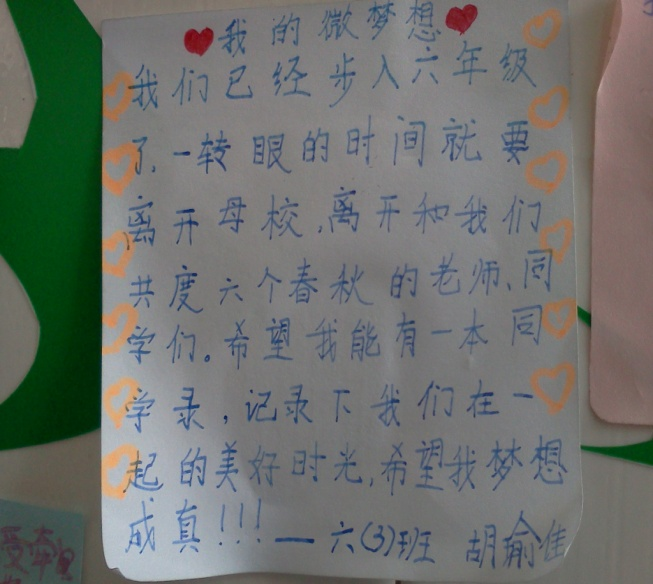 我的微梦想
我们已经步入六年级
了,一转眼的时间就要
离开母校,离开和我们
共度六个春秋的老师、同
学们。希望我能有一本同
学录,记录下我们在一
起的美好时光,希望我梦想
成真!!!—六(3)班 胡瑜佳